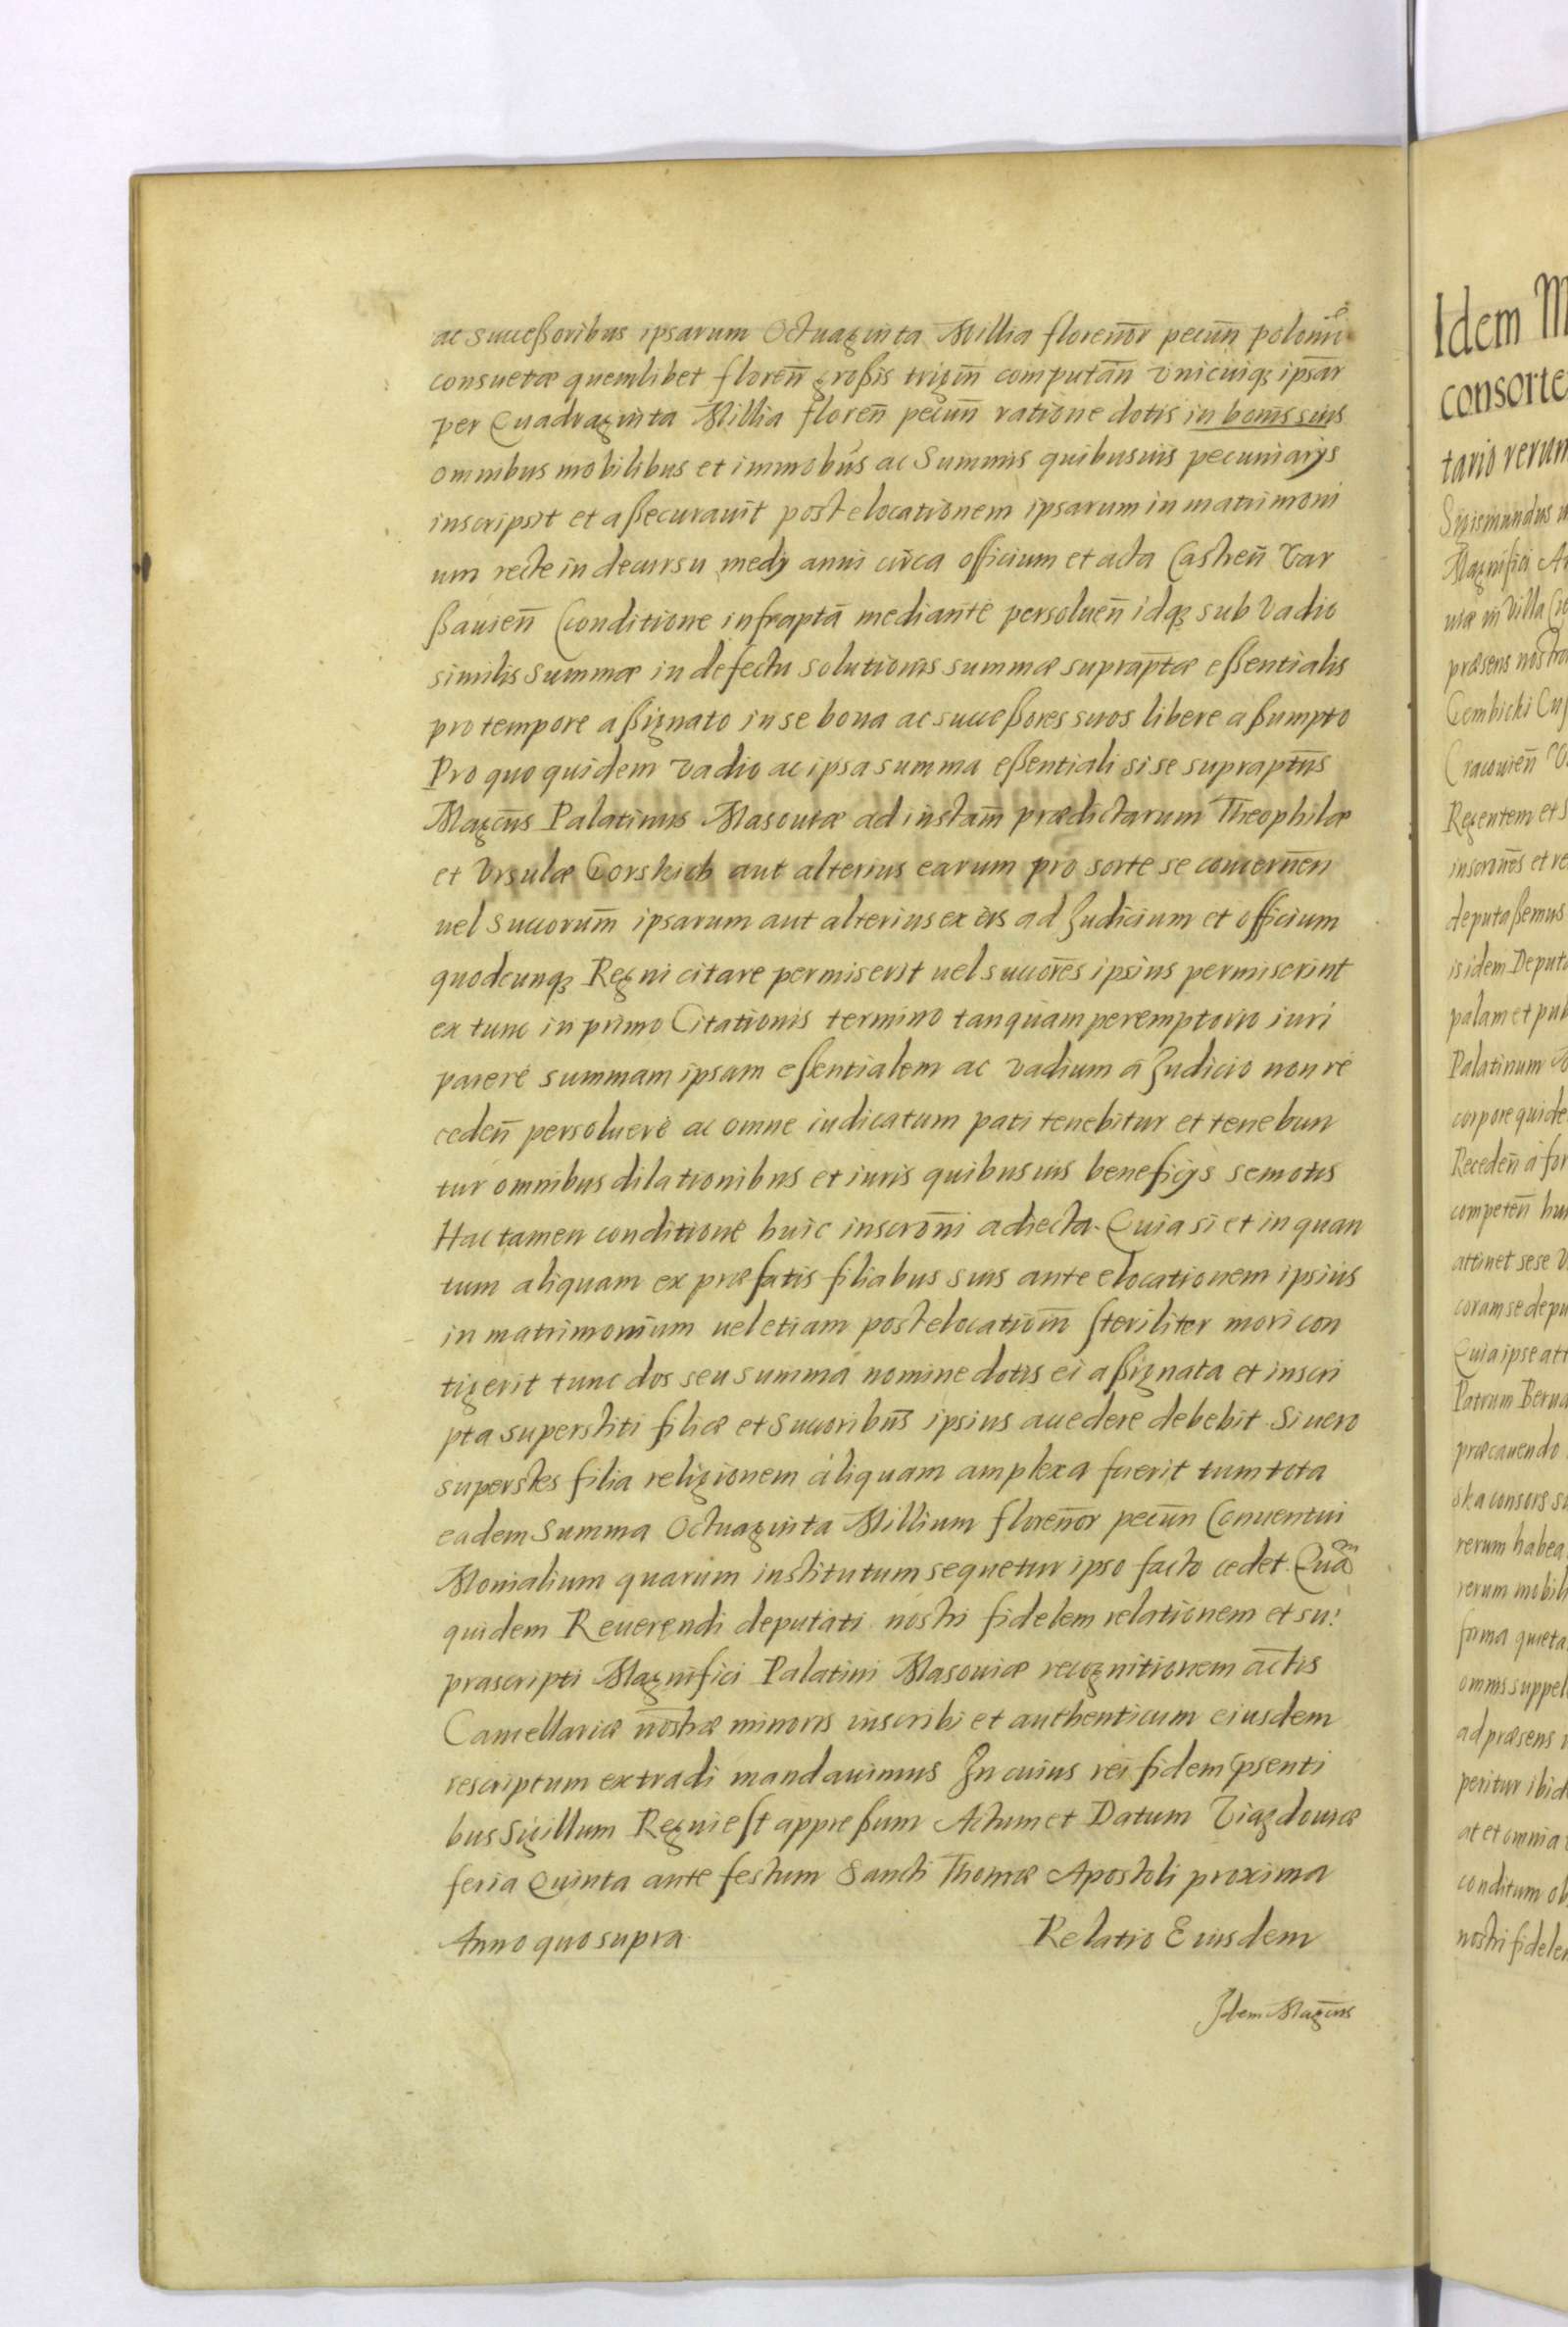 ac succeßoribus ipsarum Octuaginta Millia floren̄or pecun̄ polonic̄
consuetæ quemlibet floren̄ großis trigin̄ computan̄ Vnicuiq₃ ipsar̄
per Quadraginta Millia floren̄ pecun̄ ratione dotis in bonis suis
omnibus mobilibus et immobūs ac Summis quibusuis pecuniarys
inscripsit et aßecurauit post elocationem ipsarum in matrimoni
um recte in decursu medy anni circa officium et acta Castren̄ Var
ßauien̄ Conditione infraptā mediante persoluen̄ idq₃ sub Vadio
similis Summæ in defectu solutionis summæ suprap̄tæ eßentialis
pro tempore aßignato in se bona ac succeßores suos libere aßumpto
Pro quo quidem Vadio ac ipsa summa eßentiali si se suprapt̄us
Magc̄us Palatinus Masouiæ ad instam̄ prædictarum Theophilæ
et Vrsulæ Gorskich aut alterius earum pro sorte se concernen̄
uel Succorum̄ ipsarum aut alterius ex eis ad Judicium et officium
quodcunq₃ Regni citare permiserit uel succores̄ ipsius permiserint
ex tunc in primo Citationis termino tanquam peremptorio iuri
parere summam ipsam eßentialem ac vadium a Judicio non re
ceden̄ persoluere ac omne iudicatum pati tenebitur et tenebun
tur omnibus dilationibus et iuris quibusuis beneficys semotis
Hac tamen conditione huic inscron̄i adiecta. Quia si et in quan
tum aliquam ex præfatis filiabus suis ante elocationem ipsius
in matrimonium uel etiam post elocatiom̄ steriliter mori con
tigerit tunc dos seu summa nomine dotis ei aßignata et inscri
pta superstiti filiæ et Succoribus̄ ipsius accedere debebit. Si uero
superstes filia religionem aliquam amplexa fuerit tum tota
eadem Summa Octuaginta Millium floren̄or pecun̄ Conuentui
Monialium quarum institutum sequetur ipso facto cedet. Quam
quidem Reuerendi deputati nostri fidelem relationem et su:
prascripti Magnifici Palatini Masouiæ recognitionem actis
Cancellariæ nostræ minoris inscribi et authenticum eiusdem
rescriptum extradi mandauimus In cuius rei fidem p̄senti
bus Sigillum Regni est appreßum Actum et Datum Viazdouiæ
feria Quinta ante festum Sancti Thomæ Apostoli proxima
Anno quo supra. Relatio Eiusdem
Idem Magc̄us
Idem M
consorte
tario rerum
Sigismundus
Magnifici
uiæ in Villa
præsens nostra
Gembicki
Cracouien̄
Regentem et S
inscron̄es et re
deputaßemus
is idem Deputa
palam et pub
Palatinum
corpore quide
Receden̄ a for
competen̄ hu
attinet sese
coram se depu
Quia ipse att
Patrum Berna
præcauendo
ska consors su
rerum habea
rerum mobili
firma quieta
omnis suppel
ad præsens
peritur ibid
at et omnia
conditum ob
nostri fidele